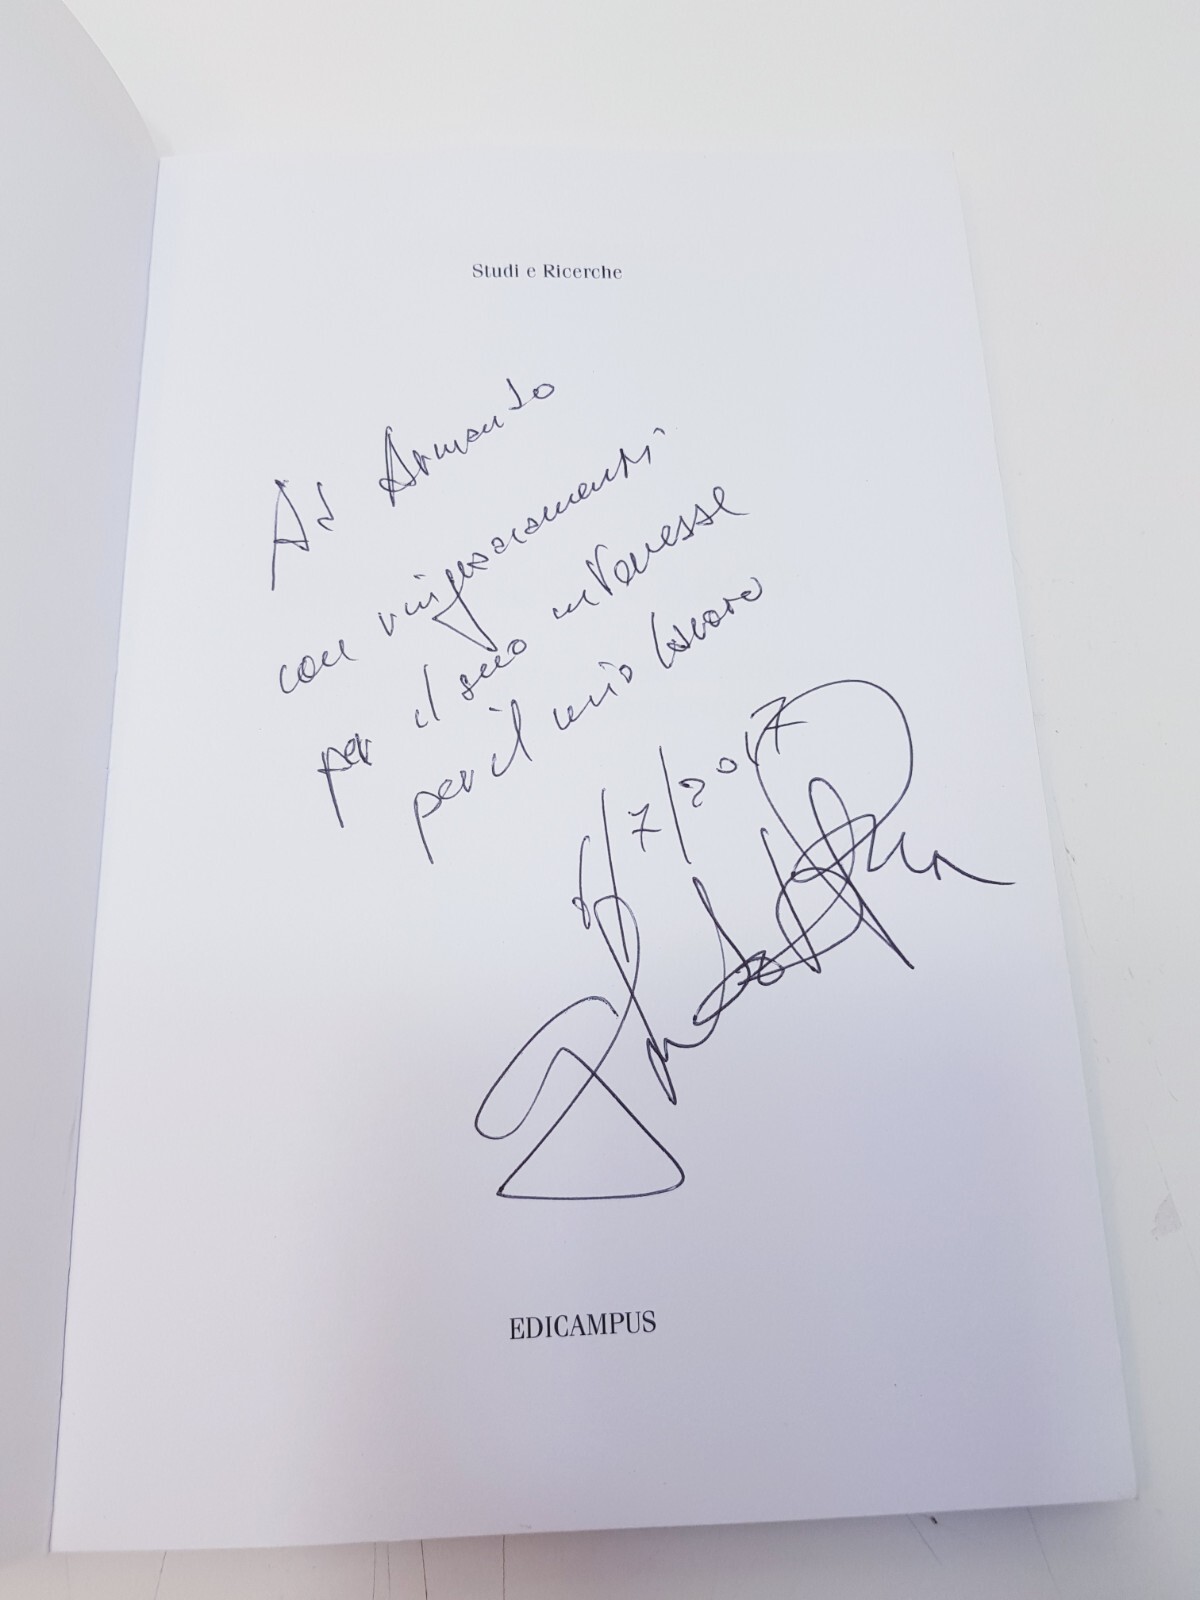 Studi e Ricerche
Ad Armando
con ringraziamenti
per il suo interesse
per il mio lavoro
6/7/2017
EDICAMPUS